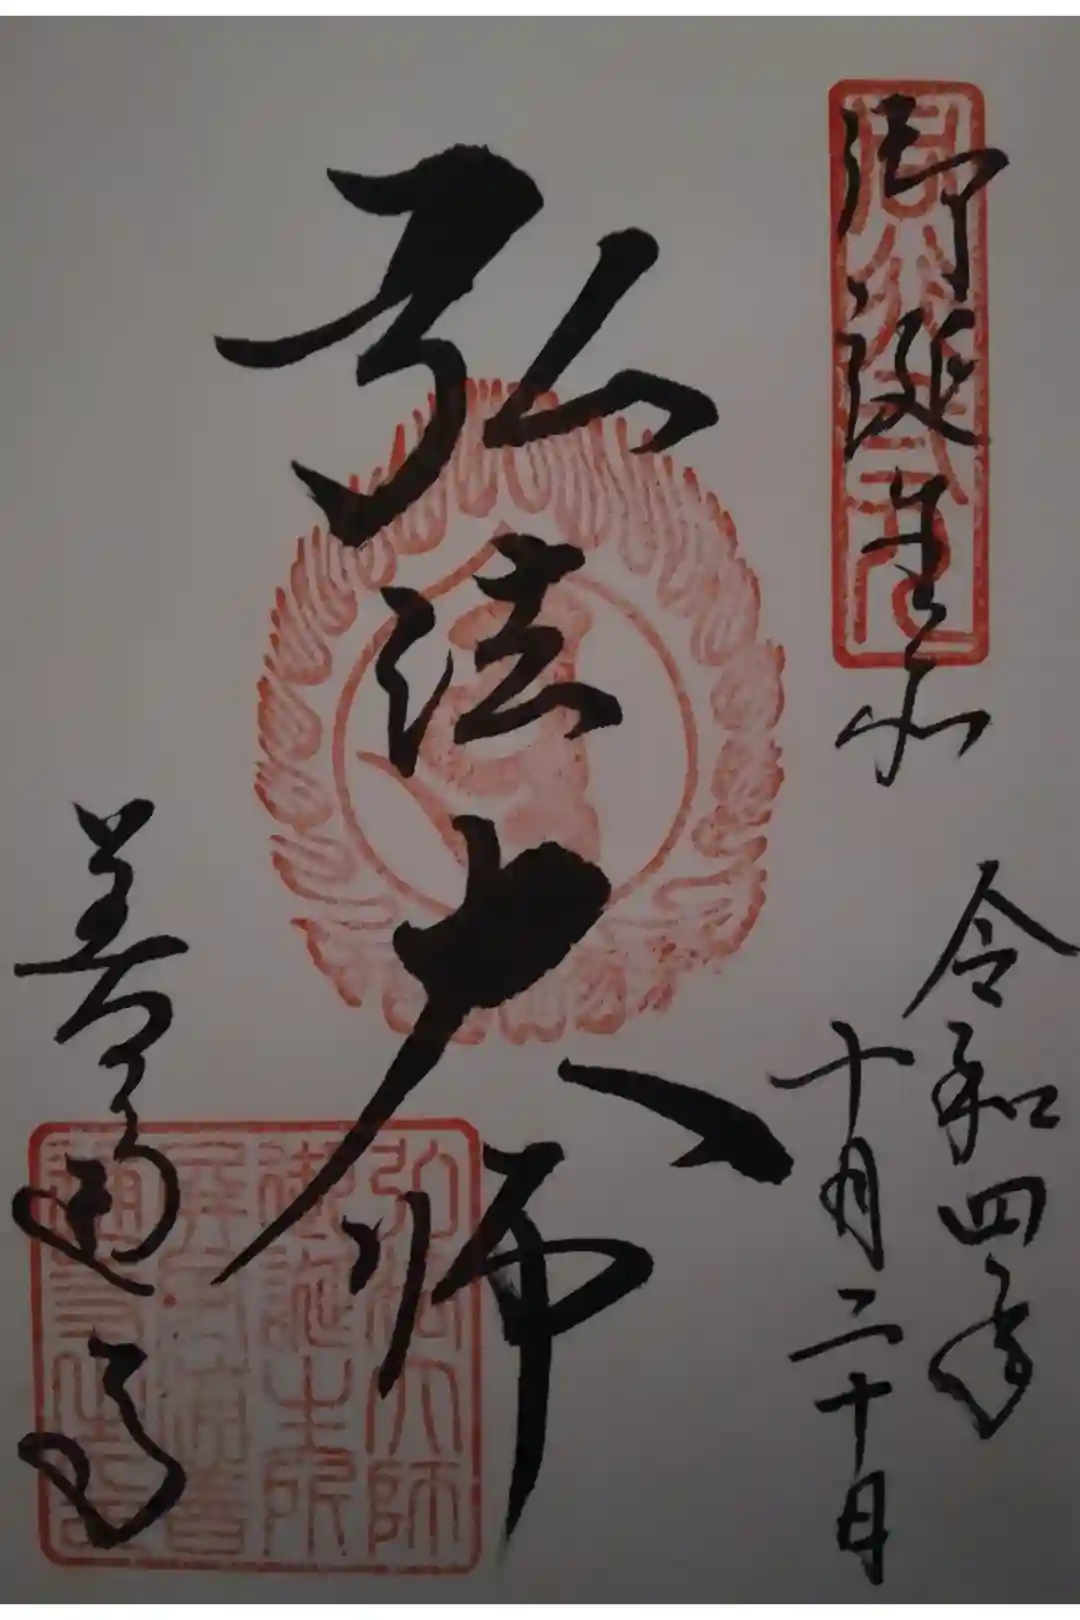 御誕生所
令和四年
十月二十日
弘法大師
善通寺
弘法大師
御誕生所
屏風浦善